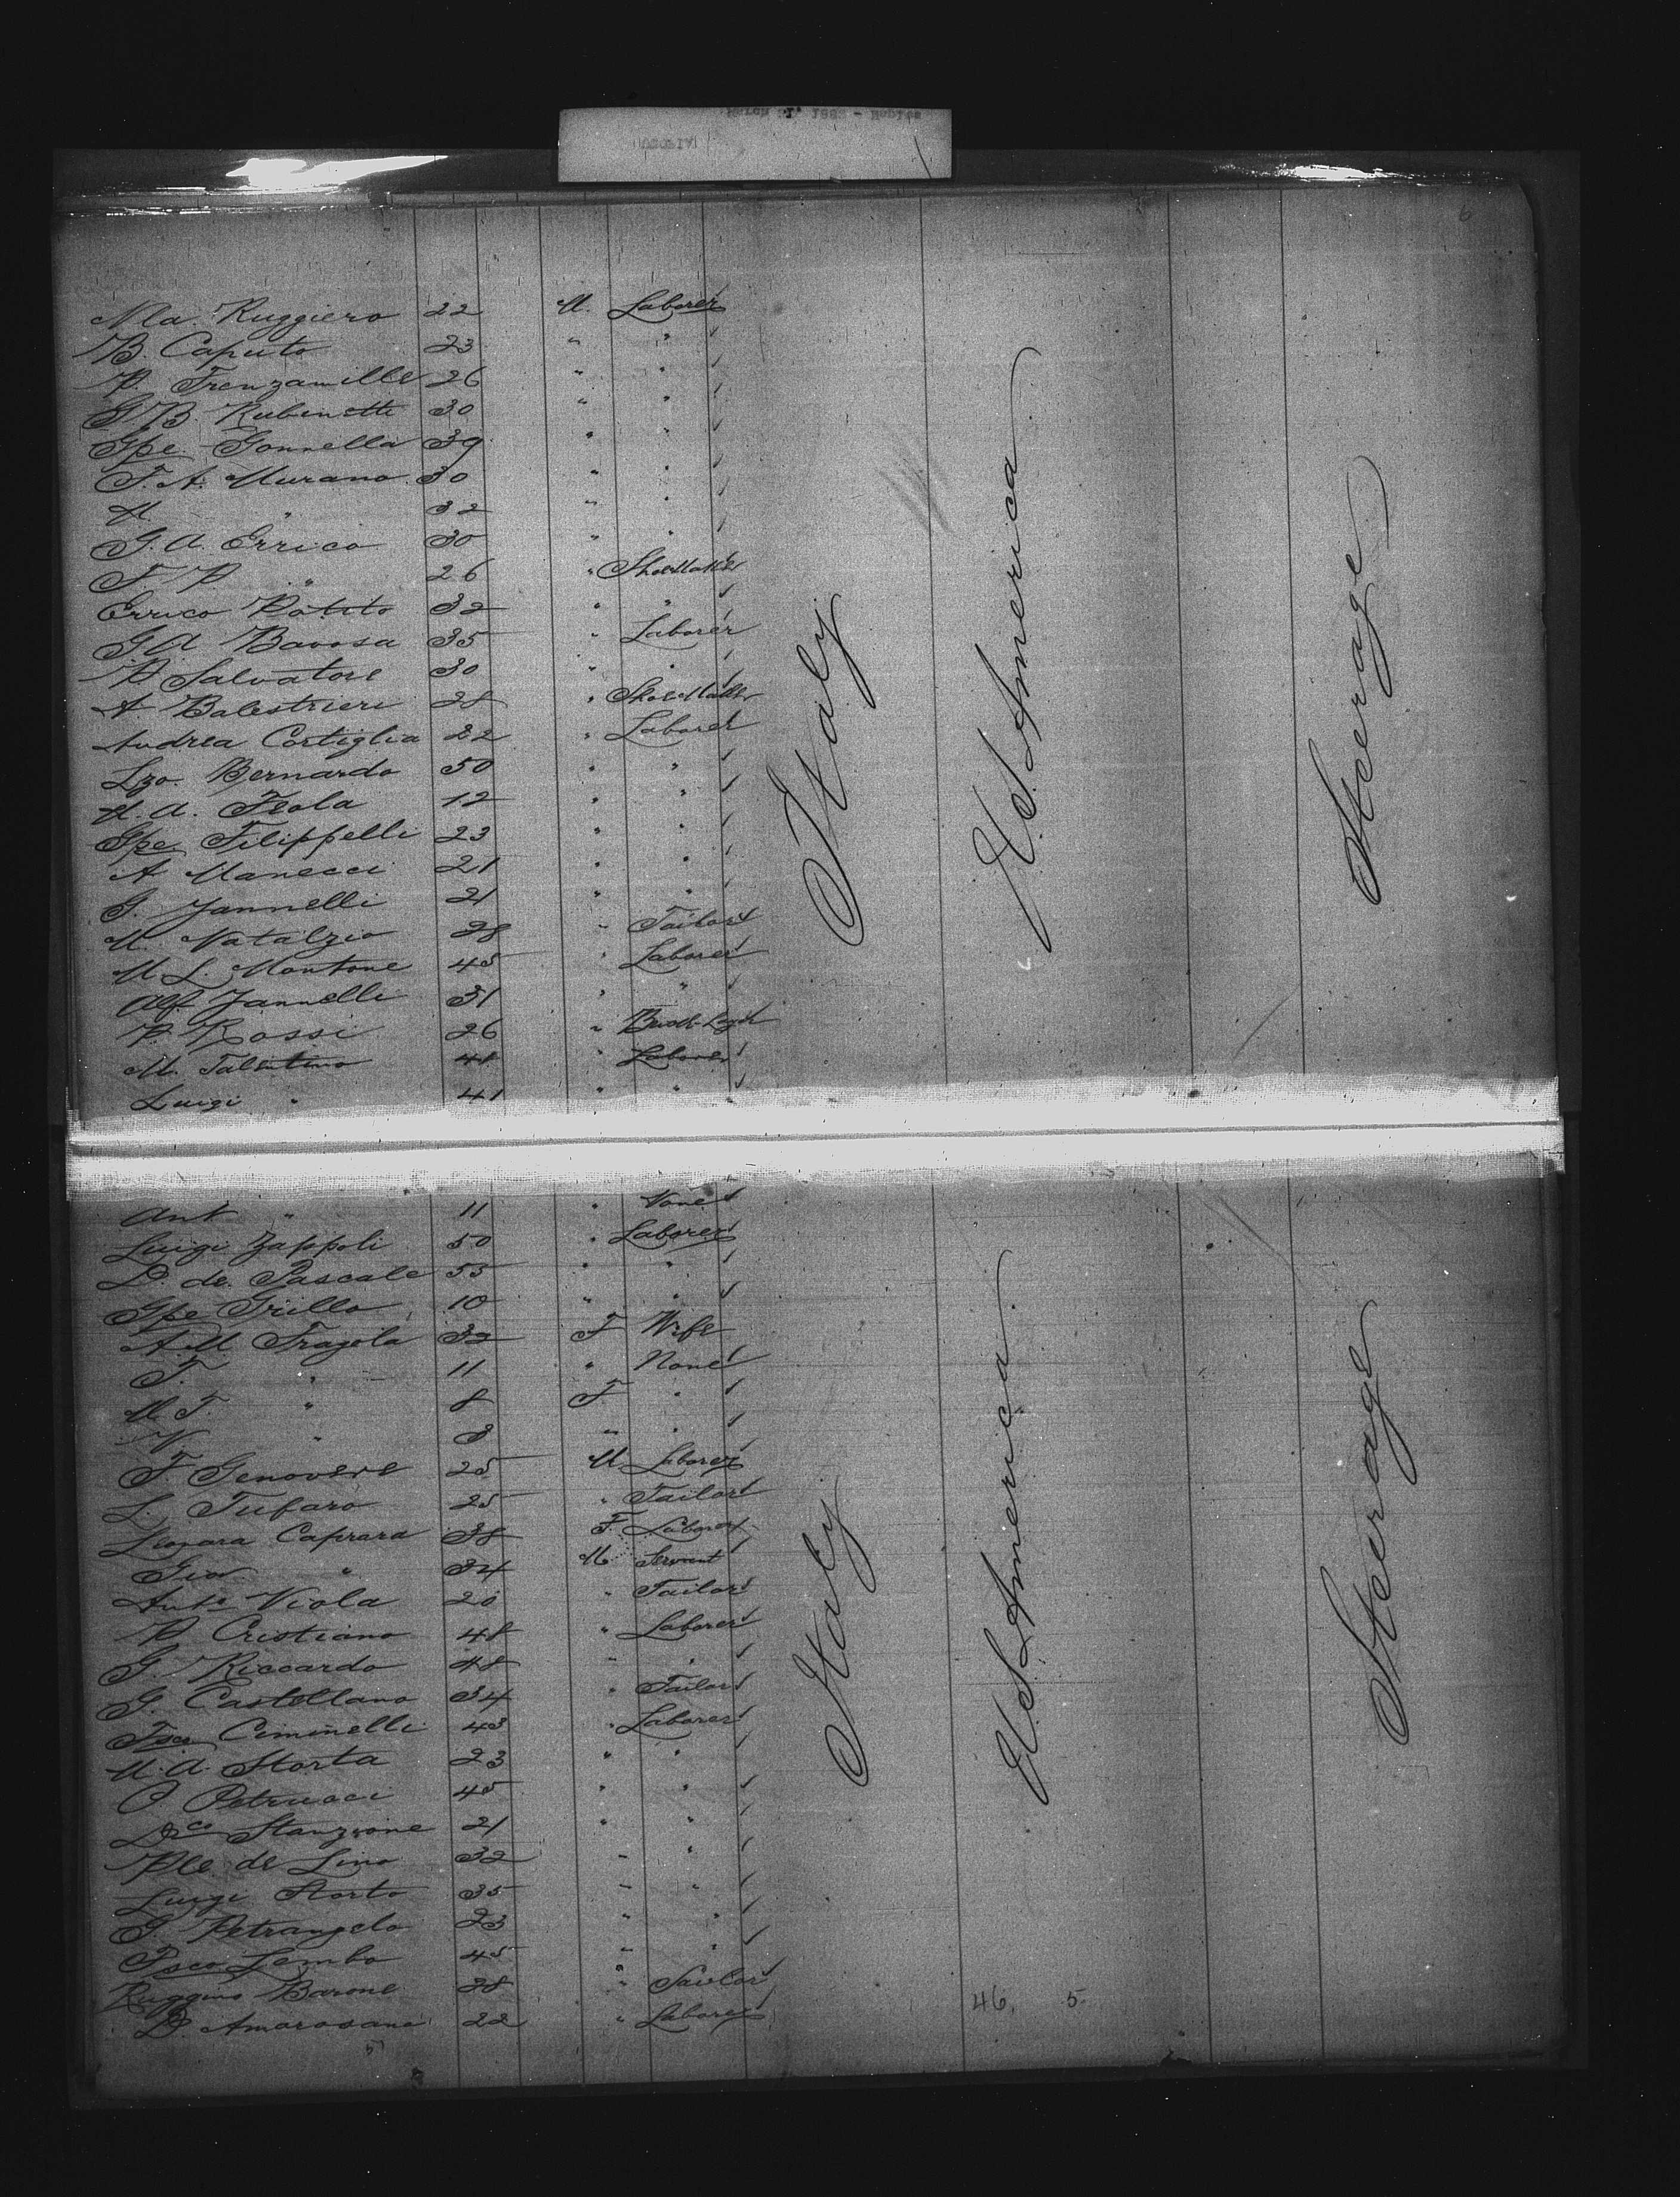 6
Nla. Ruggiero 22 M. Laborer
B. Caputo 23 " "
P. 26 " "
G B. Rubinetti 30 " "
Gpe Gonnella 39 " "
F. A. Murano 30 " "
M. " 32 " "
G. A. Errico 30 " "
F. P. " 26 " ShoeMaker
Errico Potito 32 " "
G A Bavosa 35 " Laborer
P Salvatore 30 " "
A. Balestrieri 28 " ShoeMaker
Andrea Cortiglia 22 " Laborer
Lzo. Bernardo 50 " "
M. A. Feola 12 " "
Gpe Filippelli 23 " "
A Manecci 21 " "
G. Jannelli 21 " "
M. Natalzio 28 " Tailor
M. L. Montone 45 " Laborer
Alf. Jannelli 31 " "
P. Rossi 26 "
M. Talentino 48 " Laborer
Luigi " 41 " "
Italy
U.S. America
Steerage
Ant " 11 " None
Luigi Zappoli 50 " Laborer
D. de Pascale 55 " "
Gpe Grillo 10 " "
A. M Fragola 32 F Wife
F. " 11 " None
M. F. " 8 F "
V. " 3 " "
F. Genovese 25 M Laborer
L. Tufaro 25 " Tailor
Leonara Caprara 38 F. Laborer
Gio " 34 M Servant
Anto Viola 20 " Tailor
P. Cristiano 48 " Laborer
G. Riccardo 48 " "
G. Castellano 34 " Tailor
Fsco Ciminelli 43 " Laborer
M. A. Storta 23 " "
P. Petrucci 45 " "
Dco Stanzione 21 " "
Ple de Lino 32 " "
Luigi Storto 35 " "
G. Petrangelo 23 " "
Fsco Lembo 45 " "
Ruggino Barone 28 " Tailor
D. Amorosano 22 " Laborer
Italy
U.S. America
Steerage
46. 5.